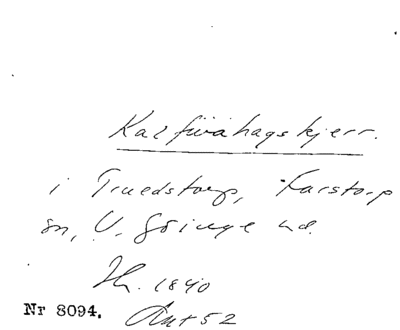 Kalfvahagskjerr.
i Truedstorp, Farstorp
sn, V. Göinge hd.
Th. 1840
Nr 8094. Ant 52